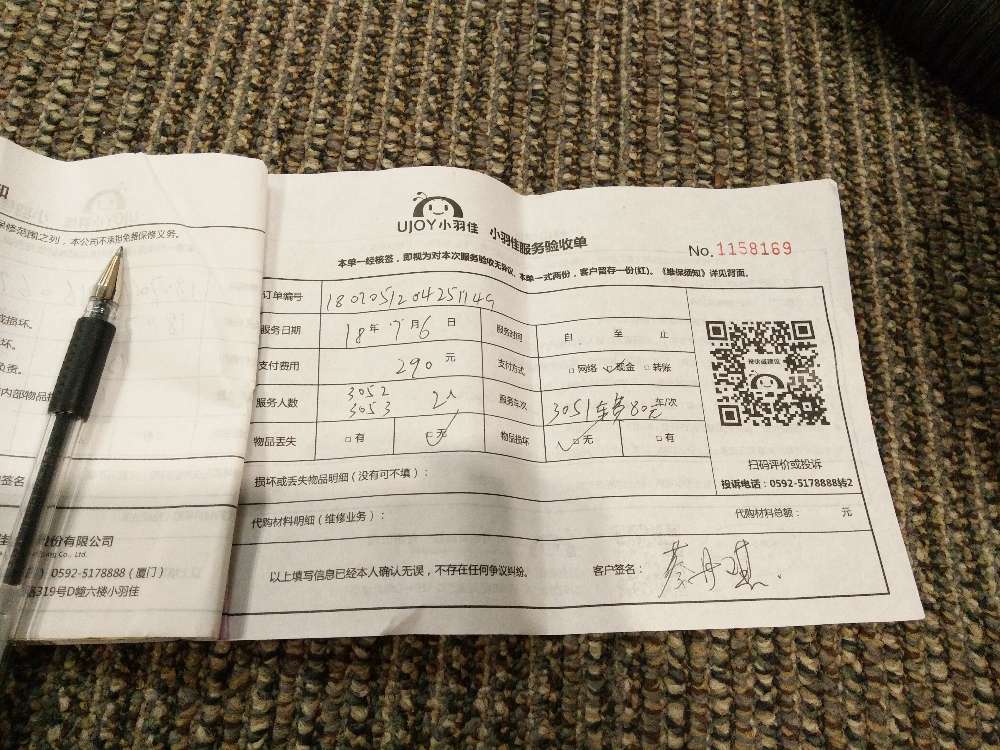 修范围之列，本公司不承担免费保修义务。
或损坏。
坏。
负责。
内部物品
签名
份有限公司
Co., Ltd.
0592-5178888（厦门）
319号D幢六楼小羽佳
UJOY小羽佳 小羽佳服务验收单
No.1158169
本单一经核签，即视为对本次服务验收无异议。本单一式两份，客户留存一份(红)。《维保须知》详见背面。
订单编号
服务日期 18年 7月 6日 服务时间 自 至 止
支付费用 290 元 支付方式 □网络 ✓现金 □转账
服务人数 3052 3053 2人 服务车次 3051 车费80元 车/次
物品丢失 □有 ✓无 物品损坏 ✓无 □有
损坏或丢失物品明细（没有可不填）：
代购材料明细（维修业务）： 代购材料总额： 元
以上填写信息已经本人确认无误，不存在任何争议纠纷。 客户签名：
扫码评价或投诉
投诉电话：0592-5178888转2